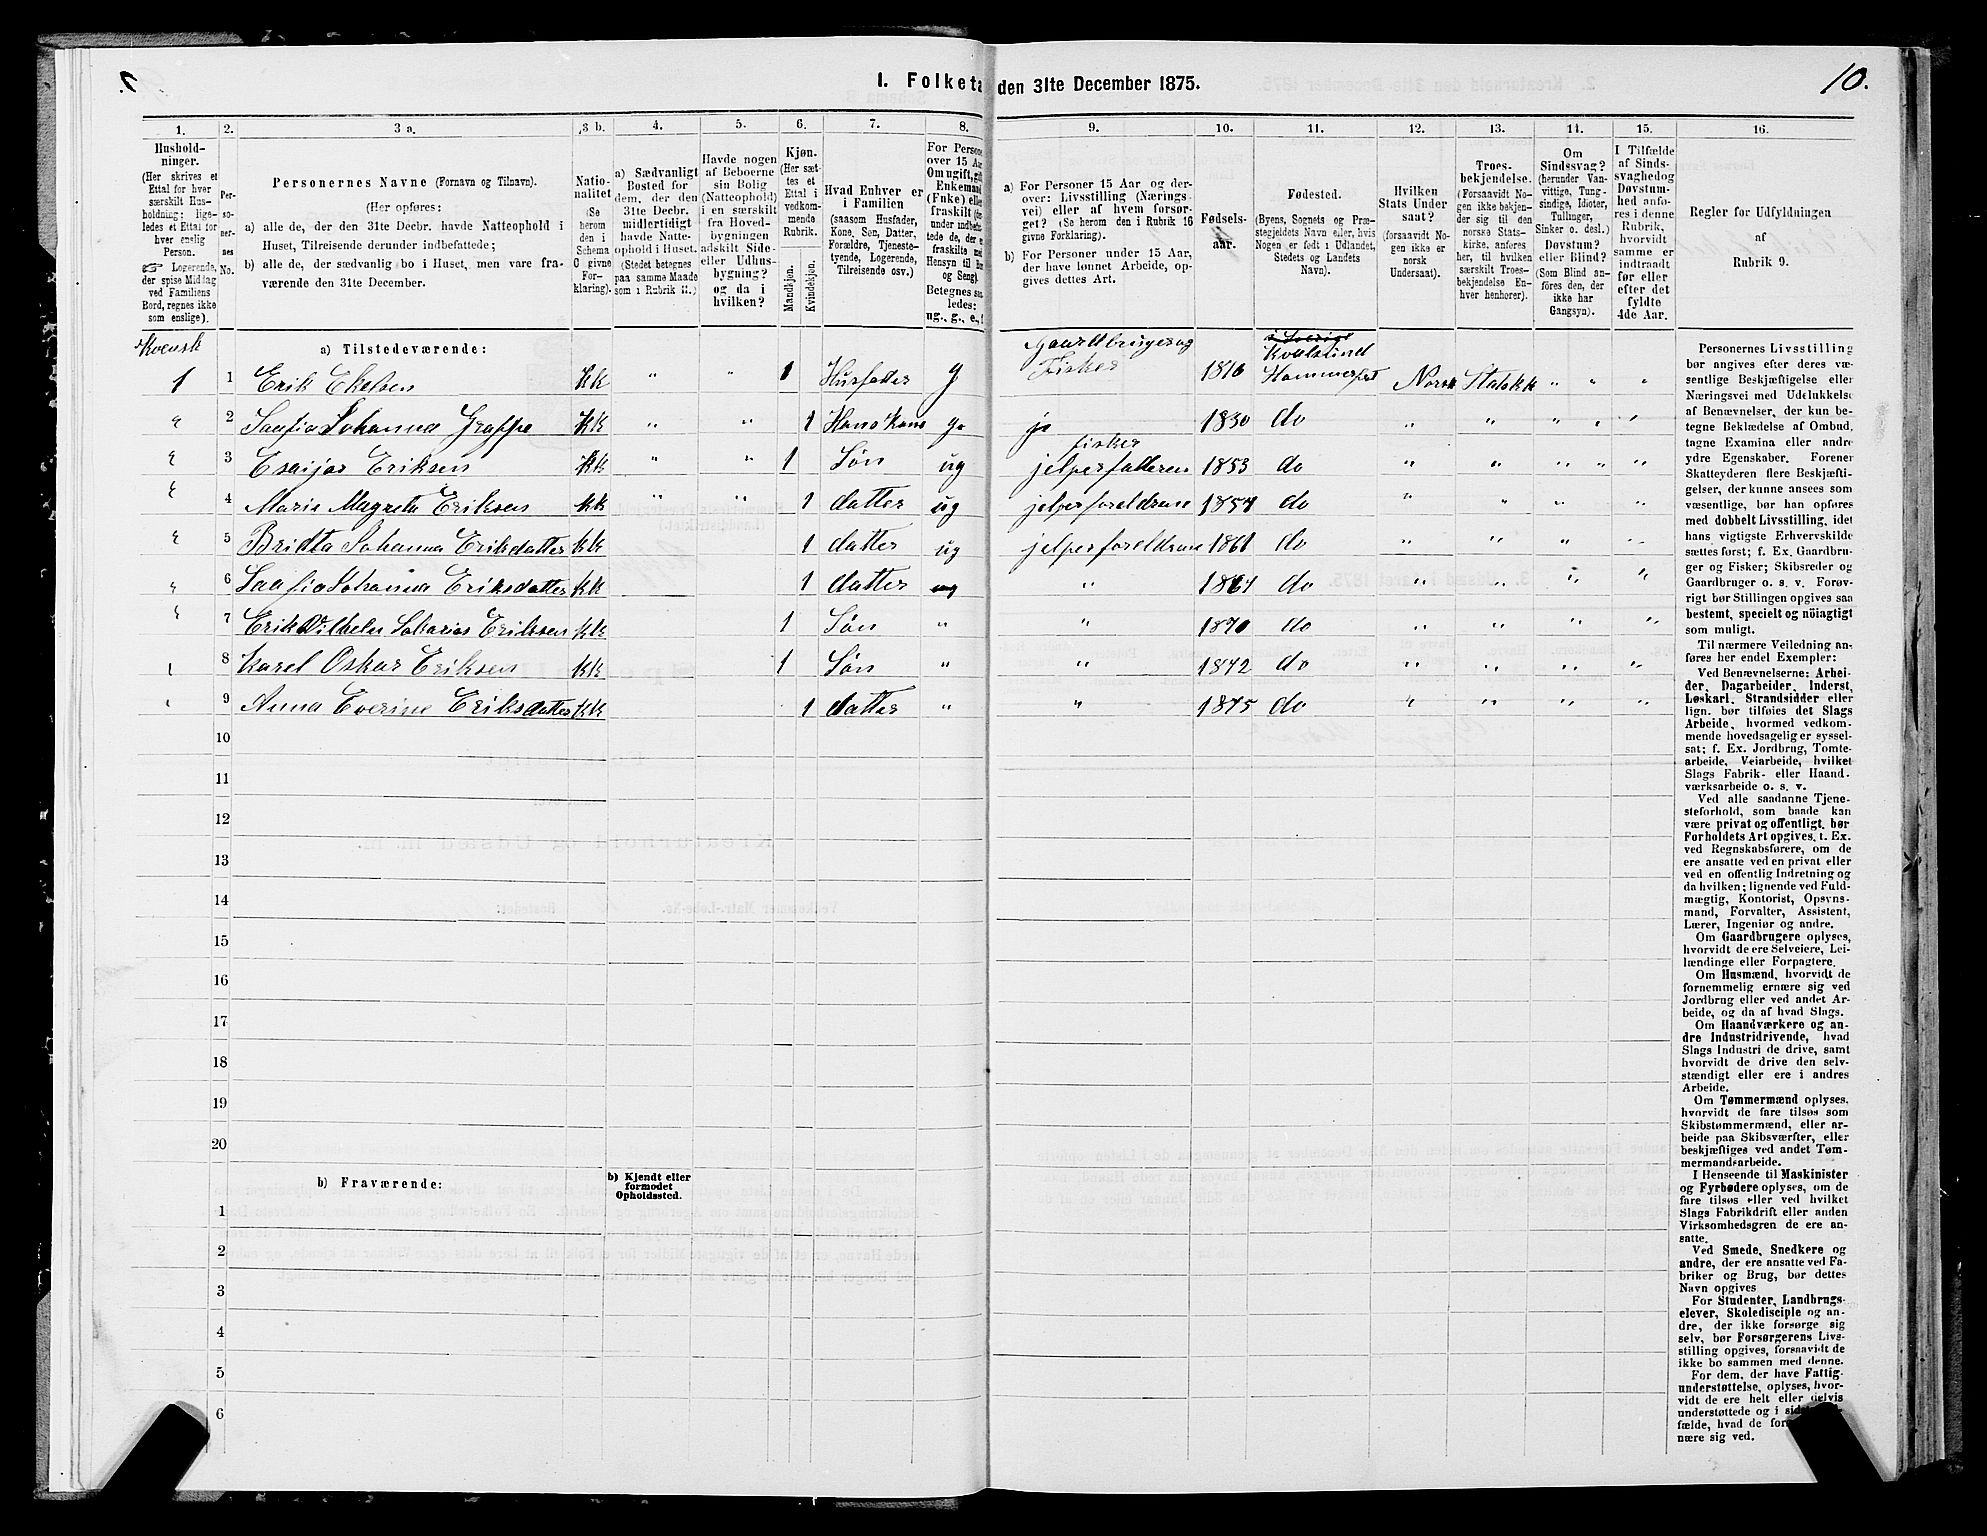 10.
1. Folketæ den 31te December 1875.
1. 2. 3 a. 3 b. 4. 5. 6. 7. 8. 9. 10. 11. 12. 13. 14. 15. 16.
Hushold-
ninger.
(Her skrives et
Ettal for hver
særskilt Hus-
holdning; lige-
ledes et Ettal for
hver enslig
Person.
☞ Logerende,
der spise Middag
ved Familiens
Bord, regnes ikke
som enslige).
Per-
so-
ner-
nes
No.
Personernes Navne (Fornavn og Tilnavn).
(Her opføres:
a) alle de, der den 31te Decbr. havde Natteophold i
Huset, Tilreisende derunder indbefattede;
b) alle de, der sædvanlig bo i Huset, men vare fra-
værende den 31te December.
Natio-
nalitet
(Se
herom
den i
Schema
O givne
For-
klaring).
a) Sædvanligt
Bosted for
dem, der den
31te Decbr.
midlertidigt
havde Natte-
ophold i Huset.
(Stedet betegnes
paa samme Maade
som i Rubrik 11.)
Havde nogen
af Beboerne
sin Bolig
(Natteophold)
i en særskilt
fra Hoved-
bygningen
adskilt Side-
eller Udhus-
bygning?
og da i
hvilken?
Kjøn.
(Her sæt-
tes et
Ettal i
vedkom-
mende
Rubrik.
Mandkjøn.
Kvindekjøn.
Hvad Enhver er
i Familien
(saasom Husfader,
Kone, Søn, Datter,
Forældre, Tjeneste-
tyende, Logerende,
Tilreisende osv.)
For Persone
over 15 Aar
Om ugift, gift
Enkemand
(Enke) elle
fraskilt
under indbefat-
tede de, der e
fraskilte me
Hensyn til Bo
og Seng).
Betegnes saa
ledes:
ug., g., e.,
a) For Personer 15 Aar og der-
over: Livsstilling (Nærings-
vei) eller af hvem forsør-
get? (Se herom den i Rubrik 16
givne Forklaring).
b) For Personer under 15 Aar,
der have lønnet Arbeide, op-
gives dettes Art.
Fødsels-
aar.
Fødested.
(Byens, Sognets og Præ-
stegjeldets Navn eller, hvis
Nogen er født i Udlandet,
Stedets og Landets
Navn).
Hvilken
Stats Under
saat?
(forsaavidt No-
gen ikke er
norsk
Undersaat).
Troes-
bekjendelse.
(Forsaavidt No-
gen ikke bekjen-
der sig til den
norske Stats-
kirke, anføres
her, til hvilken
særskilt Troes-
bekjendelse En-
hver henhører).
Om
Sindssvag?
(herunder Van-
vittige, Tung-
sindige, Idioter,
Tullinger,
Sinker o. desl.)
Døvstum?
eller Blind?
(Som Blind an-
føres den, der
ikke har
Gangsyn).
I Tilfælde
af Sinds-
svaghed og
Døvstum-
hed anfø-
res i denne
Rubrik,
hvorvidt
samme er
indtraadt
før eller
efter det
fyldte
4de Aar.
Regler for Udfyldningen
af
Rubrik 9.
Kvensk a) Tilstedeværende: Gaardbruger og i Sverige Kvalsund
1 1 Erik Ekelsen KK " " 1 Husfader g Fisker 1810 Hammerfest Norsk Statskk " " "
" 2 Saafia Johanna Grappe KK " " 1 Hans kone g. je 1830 do " " " " "
" 3 Esaijas Eriksen KK " " 1 Søn ug fisker jelper fatteren 1853 do " " " " "
" 4 Maria Magreta Eriksen KK " " 1 datter ug jelper foreldrene 1857 do " " " "
" 5 Bridta Johanna Eriksdatter KK 1 datter ug jelper foreldrene 1861 do " " " "
" 6 Saafia Johanna Eriksdatter KK 1 datter ug " 1864 do " " " "
" 7 Erik Vilhelm Sakarias Eriksen KK 1 Søn " " 1870 do " " " "
" 8 Karel Oskar Eriksen KK 1 Søn " " 1872 do " " " "
" 9 Anna Everine Eriksdatter KK 1 datter " " 1875 do " " " "
10
11
12
13
14
15
16
17
18
19
20
b) Fraværende: b) Kjendt eller
formodet
Opholdssted.
1
2
3
4
5
6
Personernes Livsstilling
bør angives efter deres væ-
sentlige Beskjæftigelse eller
Næringsvei med Udelukkelse
af Benævnelser, der kun be-
tegne Beklædelse af Ombud,
tagne Examina eller andre
ydre Egenskaber. Forener
Skatteyderen flere Beskjæfti-
gelser, der kunne ansees som
væsentlige, bør han opføres
med dobbelt Livsstilling, idet
hans vigtigste Erhvervskilde
sættes først; f. Ex. Gaardbru-
ger og Fisker; Skibsreder og
Gaardbruger o. s. v. Forøv-
rigt bør Stillingen opgives saa
bestemt, specielt og nøiagtigt
som muligt.
Til nærmere Veiledning an-
føres her endel Exempler:
Ved Benævnelserne: Arbei-
der, Dagarbeider, Inderst,
Løskarl, Strandsidder eller
lign. bør tilføies det Slags
Arbeide, hvormed vedkom-
mende hovedsagelig er syssel-
sat; f. Ex. Jordbrug, Tomte-
arbeide, Veiarbeide, hvilket
Slags Fabrik- eller Haand-
værksarbeide o. s. v.
Ved alle saadanne Tjene-
steforhold, som baade kan
være privat og offentligt, bør
Forholdets Art opgives, t. Ex.
ved Regnskabsførere, om de
ere ansatte ved en privat eller
ved en offentlig Indretning og
da hvilken; lignende ved Fuld-
mægtig, Kontorist, Opsyns-
mand, Forvalter, Assistent,
Lærer, Ingeniør og andre.
Om Gaardbrugere oplyses,
hvorvidt de ere Selveiere, Lei-
lændinge eller Forpagtere.
Om Husmænd, hvorvidt de
fornemmelig ernære sig ved
Jordbrug eller ved andet Ar-
beide, og da af hvad Slags.
Om Haandværkere og an-
dre Industridrivende, hvad
Slags Industri de drive, samt
hvorvidt de drive den selv-
stændigt eller ere i andres
Arbeide.
Om Tømmermænd oplyses,
hvorvidt de fare tilsøs som
Skibstømmermænd, eller ar-
beide paa Skibsværfter, eller
beskjæftiges ved andet Tøm-
mermandsarbeide.
I Henseende til Maskinister
og Fyrbødere oplyses, om de
fare tilsøs eller ved hvilket
Slags Fabrikdrift eller anden
Virksomhedsgren de ere an-
satte.
Ved Smede, Snedkere og
andre, der ere ansatte ved Fa-
briker og Brug, bør dettes
Navn opgives
For Studenter, Landbrugs-
elever, Skoledisciple og an-
dre, der ikke forsørge sig
selv, bør Forsørgerens Livs-
stilling opgives, forsaavidt de
ikke bo sammen med denne.
For dem, der have Fattig-
understøttelse, oplyses, hvor-
vidt de ere helt eller delvis
understøttede og i sidst
fælde, hvad de for
nære sig ved.